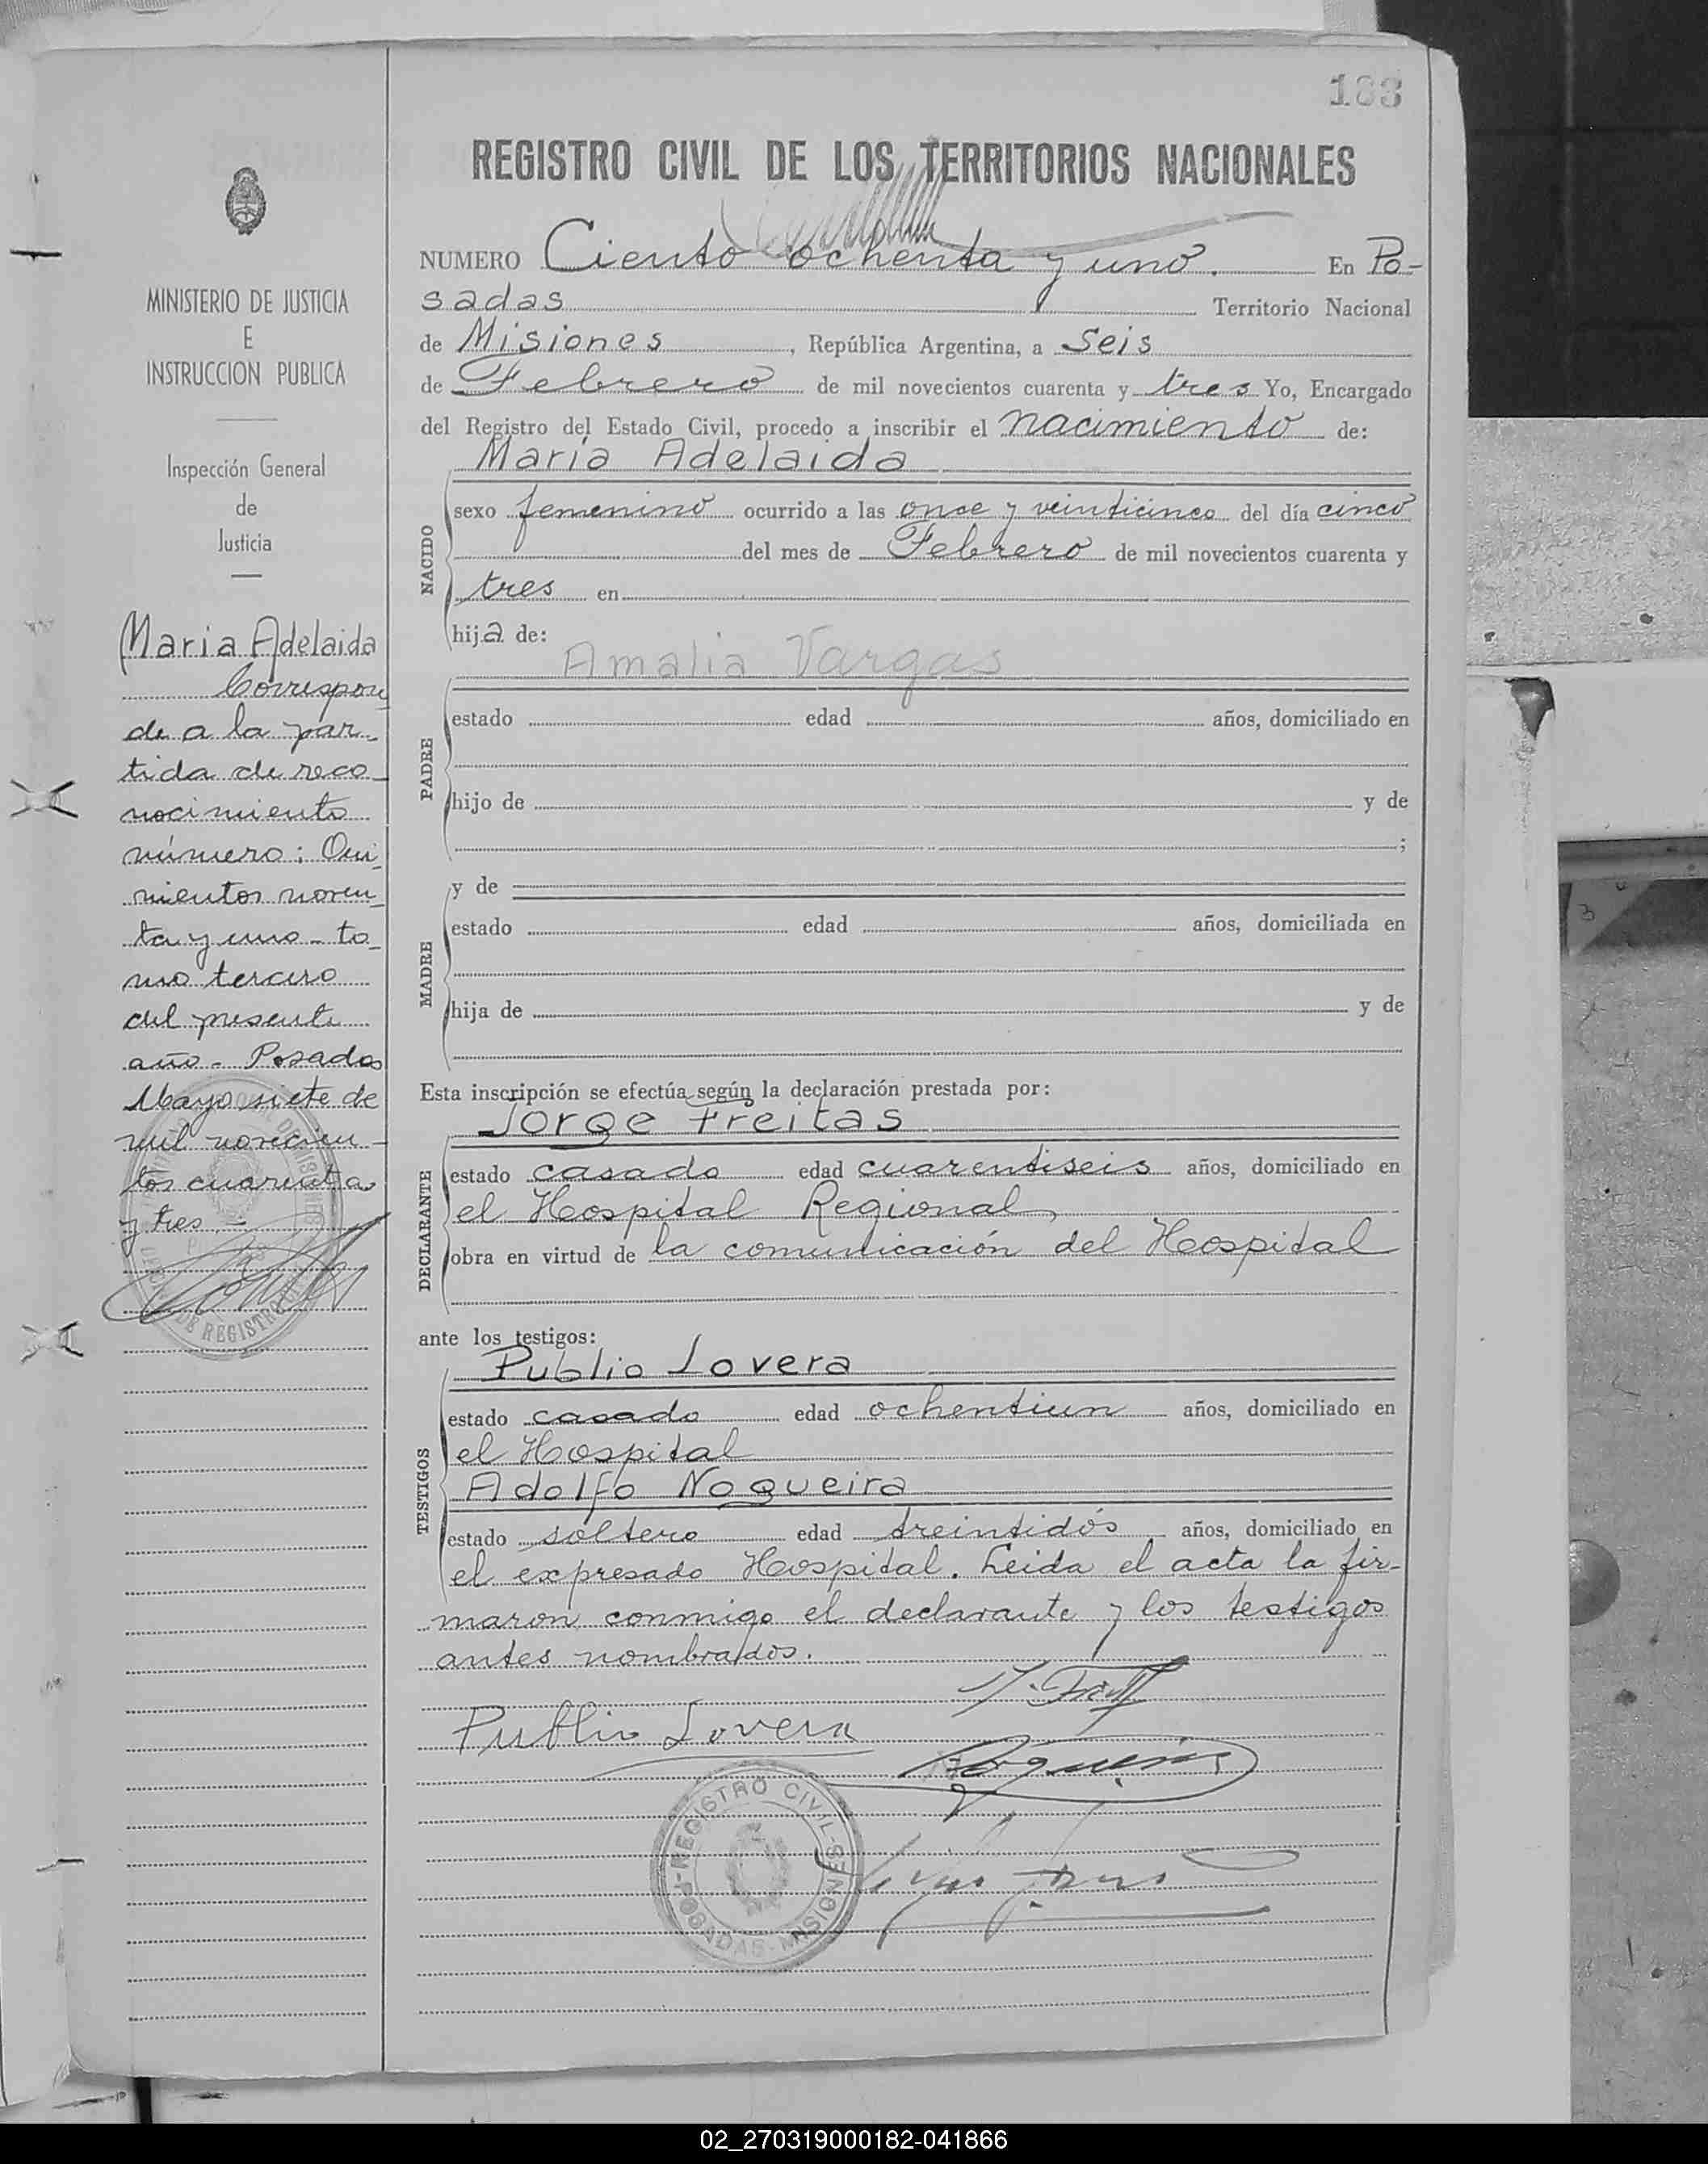 183
REGISTRO CIVIL DE LOS TERRITORIOS NACIONALES
NUMERO Ciento ochenta y uno. En Po-
sadas Territorio Nacional
de Misiones, República Argentina, a Seis
de Febrero de mil novecientos cuarenta y tres Yo, Encargado
del Registro del Estado Civil, procedo a inscribir el nacimiento de:
María Adelaida
NACIDO
sexo femenino ocurrido a las once y veinticinco del día cinco
del mes de Febrero de mil novecientos cuarenta y
tres en
hija de:
Amalia Vargas
PADRE
estado edad años, domiciliado en
hijo de y de
;
y de
MADRE
estado edad años, domiciliada en
hija de y de
Esta inscripción se efectúa según la declaración prestada por:
Jorge Freitas
DECLARANTE
estado casado edad cuarentiseis años, domiciliado en
el Hospital Regional,
obra en virtud de la comunicación del Hospital
ante los testigos:
Publio Lovera
TESTIGOS
estado casado edad ochentiun años, domiciliado en
el Hospital
Adolfo Nogueira
estado soltero edad treintidós años, domiciliado en
el expresado Hospital. Leida el acta la fir-
maron conmigo el declarante y los testigos
antes nombrados.
Publio Lovera
REGISTRO CIVIL-SEN
POSADAS-MISIONES
MINISTERIO DE JUSTICIA
E
INSTRUCCION PUBLICA
Inspección General
de
Justicia
Maria Adelaida
Correspon
de a la par-
tida de reco-
nocimiento
número: Qui
nientos noven
ta y uno - to-
mo tercero
del presente
año. Posadas
Mayo siete de
mil novecien-
tos cuarenta
y tres -
DE REGISTRO
3
02_270319000182-041866